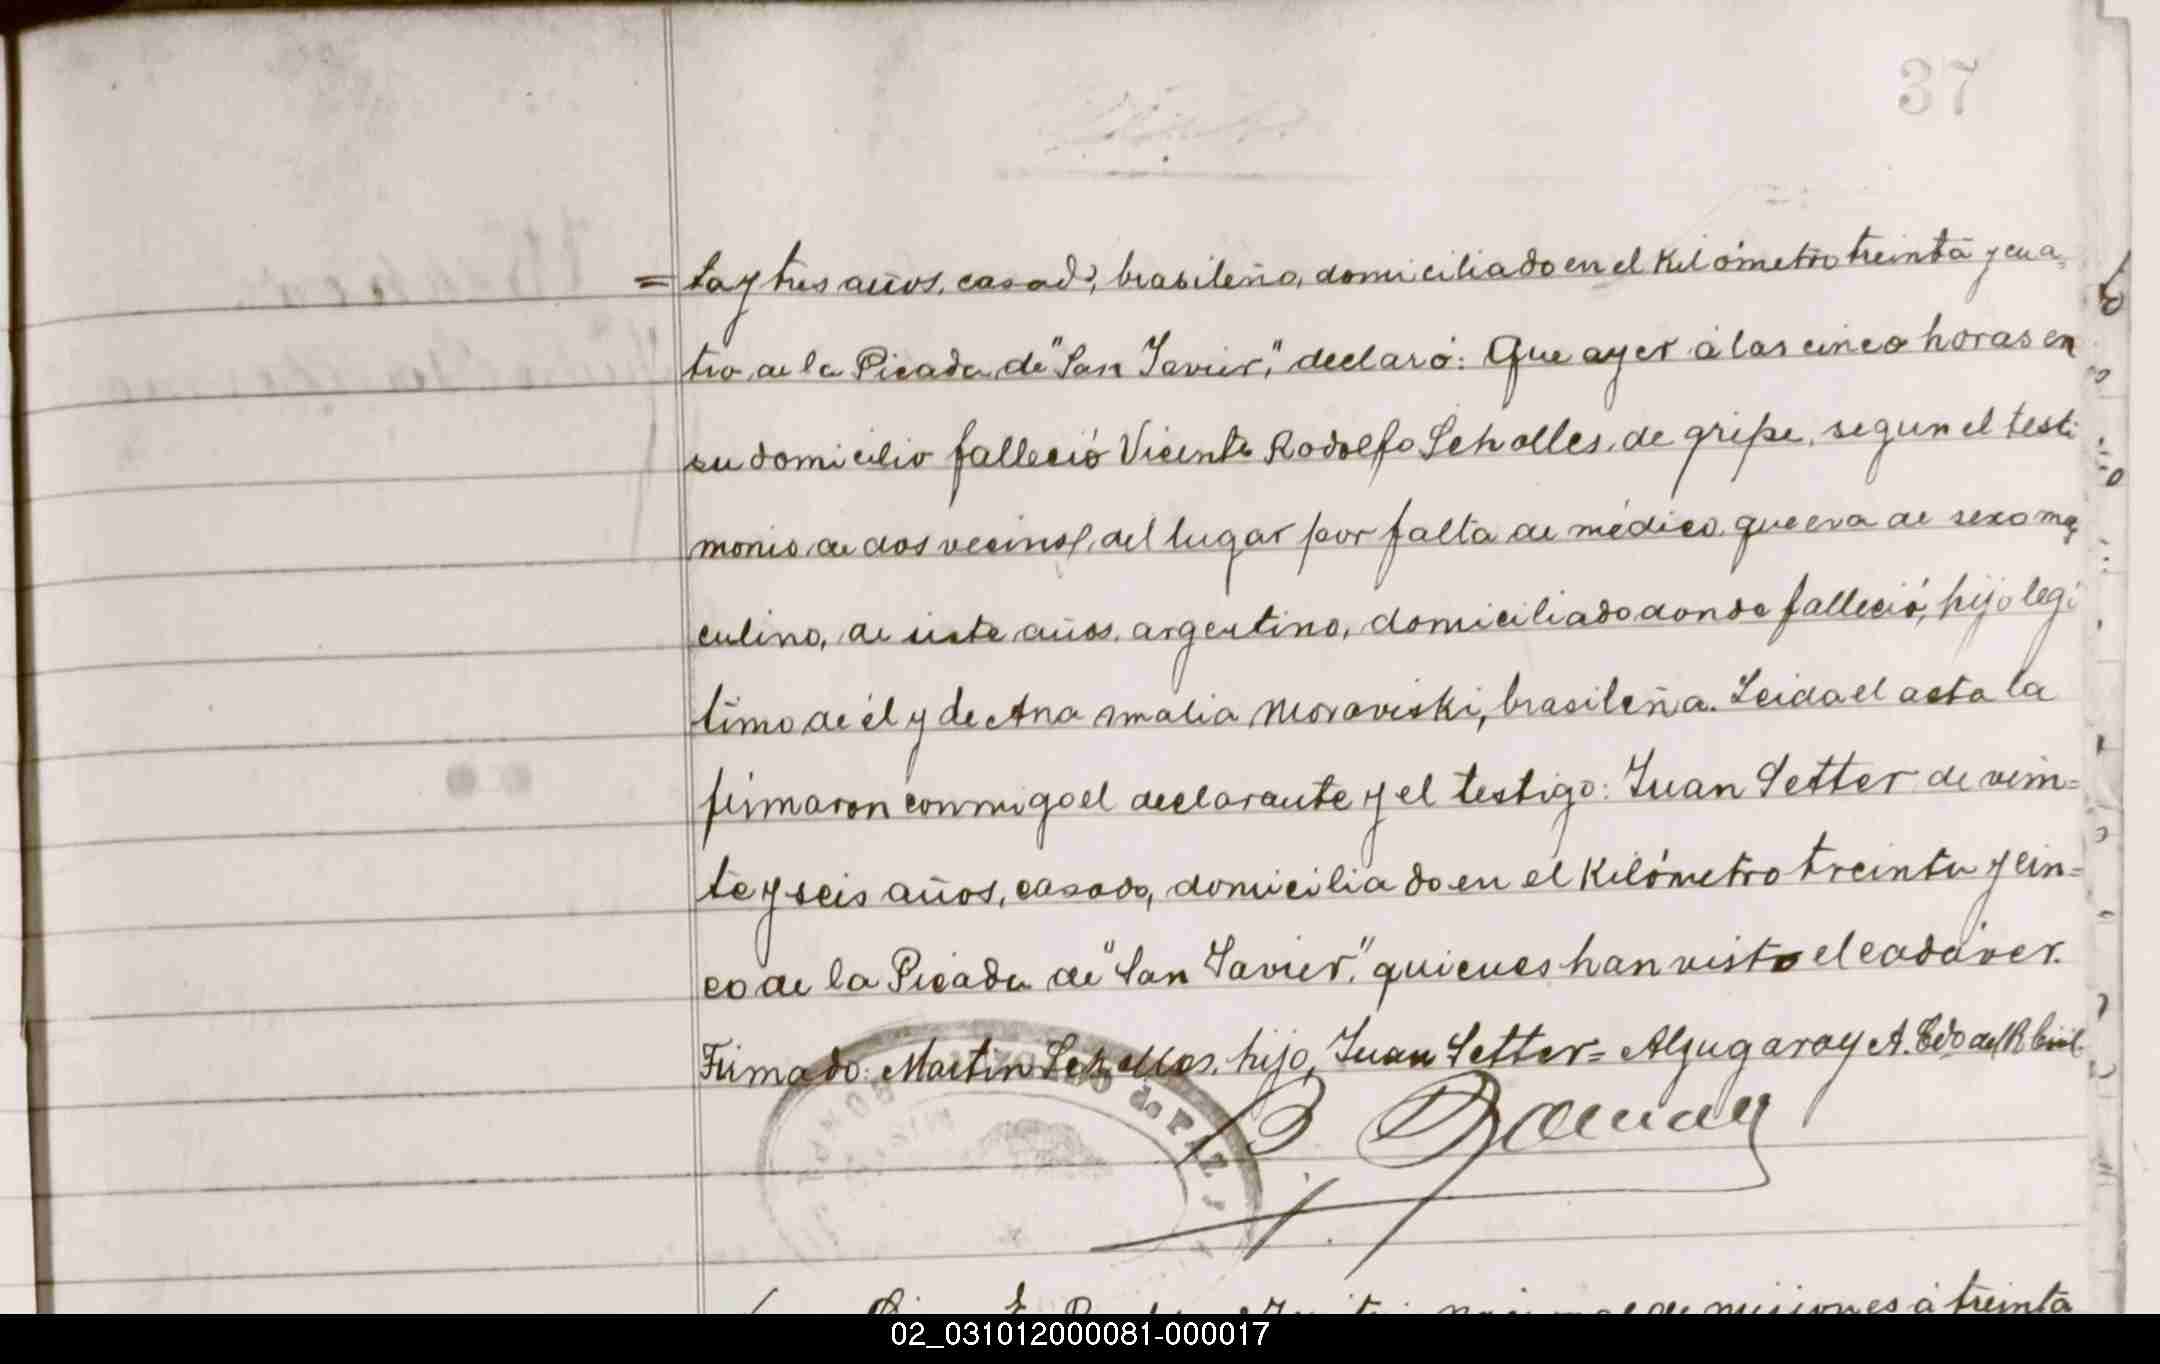 37
= ta y tres años, casado, brasileño, domiciliado en el Kilómetro treinta y cua=
tro de la Picada de "San Javier", declaró: Que ayer á las cinco horas en
su domicilio falleció Vicente Rodolfo Scholles, de gripe, segun el testi
monio de dos vecinos, del lugar por falta de médico, que era de sexo mas
culino, de siete años, argentino, domiciliado donde falleció, hijo legi
timo de él y de Ana malia Moraviski, brasileña. Leida el acta la
firmaron conmigo el declarante y el testigo: Juan Setter de vein=
te y seis años, casado, domiciliado en el Kilómetro treinta y cin=
co de la Picada de "San Javier", quienes han visto el cadáver.
Firmado: Martin Scholles, hijo, Juan Setter= Alzugaray A. Edo del R. Civil
DE PAZ
treinta
02_031012000081-000017